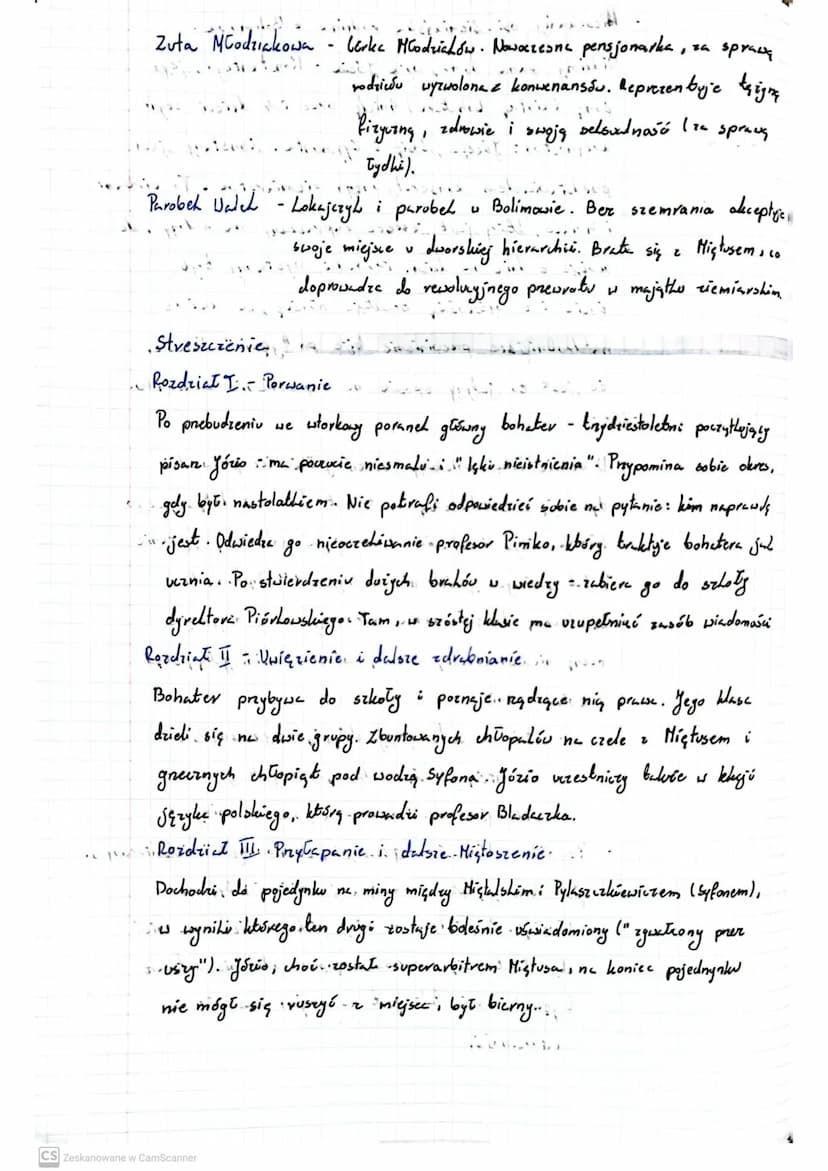 Zuta Młodziakowa - Córka Młodziaków. Nowoczesna pensjonarka, za sprawą
rodziców wyzwolona z konwenansów. Reprezentuje tężyznę
fizyczną, zdrowie i swoją seksualność (za sprawą
łydki).
Parobek Walek - Lokajczyk i parobek w Bolimowie. Bez szemrania akceptuje
swoje miejsce w dworskiej hierarchii. Brata się z Miętusem, co
doprowadza do rewolucyjnego przewrotu w majątku ziemiarskim
Streszczenie
Rozdział I - Porwanie
Po przebudzeniu we wtorkowy poranek główny bohater - trzydziestoletni początkujący
pisarz Józio - ma poczucie niesmaku i "lęku nieistnienia". Przypomina sobie okres,
gdy był nastolatkiem. Nie potrafi odpowiedzieć sobie na pytanie: kim naprawdę
jest. Odwiedza go nieoczekiwanie profesor Pimko, który traktuje bohatera jak
ucznia. Po stwierdzeniu dużych braków w wiedzy - zabiera go do szkoły
dyrektora Piórkowskiego. Tam, w szóstej klasie ma uzupełnić zasób wiadomości
Rozdział II - Uwięzienie i dalsze zdrabnianie
Bohater przybywa do szkoły i poznaje rządzące nią prawa. Jego klasa
dzieli się na dwie grupy. Zbuntowanych chłopaków na czele z Miętusem i
grzecznych chłopiąt pod wodzą Syfona. Józio uczestniczy także w lekcji
języka polskiego, którą prowadzi profesor Bladaczka.
Rozdział III Przyłapanie i dalsze Miętoszenie
Dochodzi do pojedynku na miny między Miętalskim i Pylaszczkiewiczem (Syfonem),
w wyniku którego ten drugi zostaje boleśnie uświadomiony ("zgwałcony przez
uszy"). Józio, choć został superarbitrem Miętusa, na koniec pojedynku
nie mógł się ruszyć z miejsca, był bierny.
CS Zeskanowane w CamScanner